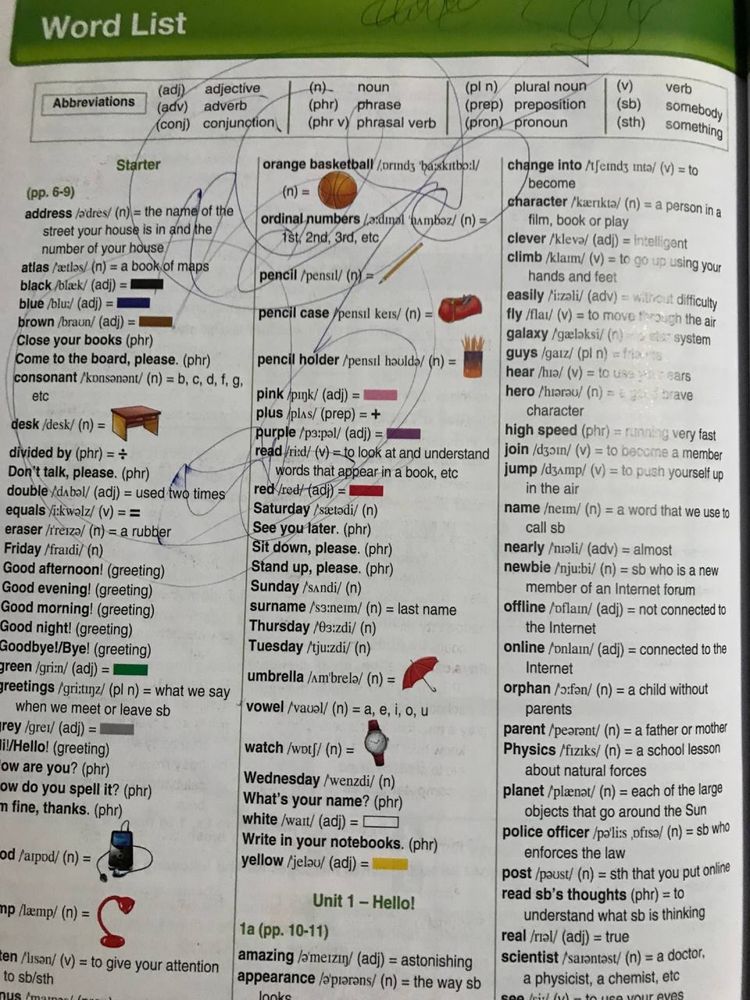 Word List
Abbreviations
(adj) adjective
(adv) adverb
(conj) conjunction
(n) noun
(phr) phrase
(phr v) phrasal verb
(pl n) plural noun
(prep) preposition
(pron) pronoun
(v) verb
(sb) somebody
(sth) something
Starter
(pp. 6-9)
address /ə'dres/ (n) = the name of the
street your house is in and the
number of your house
atlas /ætləs/ (n) = a book of maps
black /blæk/ (adj) =
blue /blu:/ (adj) =
brown /braʊn/ (adj) =
Close your books (phr)
Come to the board, please. (phr)
consonant /kɒnsənənt/ (n) = b, c, d, f, g,
etc
desk /desk/ (n) =
divided by (phr) = ÷
Don't talk, please. (phr)
double /dʌbəl/ (adj) = used two times
equals /i:kwəlz/ (v) = =
eraser /ɪ'reɪzə/ (n) = a rubber
Friday /fraɪdi/ (n)
Good afternoon! (greeting)
Good evening! (greeting)
Good morning! (greeting)
Good night! (greeting)
Goodbye!/Bye! (greeting)
green /gri:n/ (adj) =
greetings /gri:tɪŋz/ (pl n) = what we say
when we meet or leave sb
grey /greɪ/ (adj) =
Hi!/Hello! (greeting)
ow are you? (phr)
ow do you spell it? (phr)
m fine, thanks. (phr)
od /aɪpɒd/ (n) =
mp /læmp/ (n) =
ten /lɪsən/ (v) = to give your attention
to sb/sth
orange basketball /ɒrɪndʒ 'bɑ:skɪtbɔ:l/
(n) =
ordinal numbers /ɔ:dɪnəl 'nʌmbəz/ (n) =
1st, 2nd, 3rd, etc
pencil /pensɪl/ (n) =
pencil case /pensɪl keɪs/ (n) =
pencil holder /pensɪl həʊldə/ (n) =
pink /pɪŋk/ (adj) =
plus /plʌs/ (prep) = +
purple /pɜ:pəl/ (adj) =
read /ri:d/ (v) = to look at and understand
words that appear in a book, etc
red /red/ (adj) =
Saturday /sætədi/ (n)
See you later. (phr)
Sit down, please. (phr)
Stand up, please. (phr)
Sunday /sʌndi/ (n)
surname /sɜ:neɪm/ (n) = last name
Thursday /θɜ:zdi/ (n)
Tuesday /tju:zdi/ (n)
umbrella /ʌm'brelə/ (n) =
vowel /vaʊəl/ (n) = a, e, i, o, u
watch /wɒtʃ/ (n) =
Wednesday /wenzdi/ (n)
What's your name? (phr)
white /waɪt/ (adj) =
Write in your notebooks. (phr)
yellow /jeləʊ/ (adj) =
Unit 1 – Hello!
1a (pp. 10-11)
amazing /ə'meɪzɪŋ/ (adj) = astonishing
appearance /ə'pɪərəns/ (n) = the way sb
looks
change into /tʃeɪndʒ ɪntə/ (v) = to
become
character /kærɪktə/ (n) = a person in a
film, book or play
clever /klevə/ (adj) = intelligent
climb /klaɪm/ (v) = to go up using your
hands and feet
easily /i:zəli/ (adv) = without difficulty
fly /flaɪ/ (v) = to move through the air
galaxy /gæləksi/ (n) = a star system
guys /gaɪz/ (pl n) = friends
hear /hɪə/ (v) = to use your ears
hero /hɪərəʊ/ (n) = a good brave
character
high speed (phr) = running very fast
join /dʒɔɪn/ (v) = to become a member
jump /dʒʌmp/ (v) = to push yourself up
in the air
name /neɪm/ (n) = a word that we use to
call sb
nearly /nɪəli/ (adv) = almost
newbie /nju:bi/ (n) = sb who is a new
member of an Internet forum
offline /ɒflaɪn/ (adj) = not connected to
the Internet
online /ɒnlaɪn/ (adj) = connected to the
Internet
orphan /ɔ:fən/ (n) = a child without
parents
parent /peərənt/ (n) = a father or mother
Physics /fɪzɪks/ (n) = a school lesson
about natural forces
planet /plænət/ (n) = each of the large
objects that go around the Sun
police officer /pə'li:s ˌɒfɪsə/ (n) = sb who
enforces the law
post /pəʊst/ (n) = sth that you put online
read sb's thoughts (phr) = to
understand what sb is thinking
real /rɪəl/ (adj) = true
scientist /saɪəntəst/ (n) = a doctor,
a physicist, a chemist, etc
see /si:/ (v) = to use your eyes